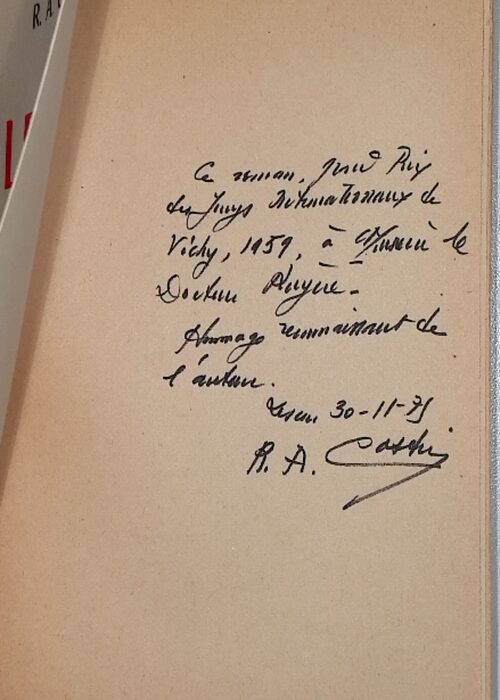 R. A
LE
Ce roman, grand Prix
des Jurys Internationaux de
Vichy, 1959, à Monsieur le
Docteur
Hommage reconnaissant de
l'auteur.
30-11-75
R. A.